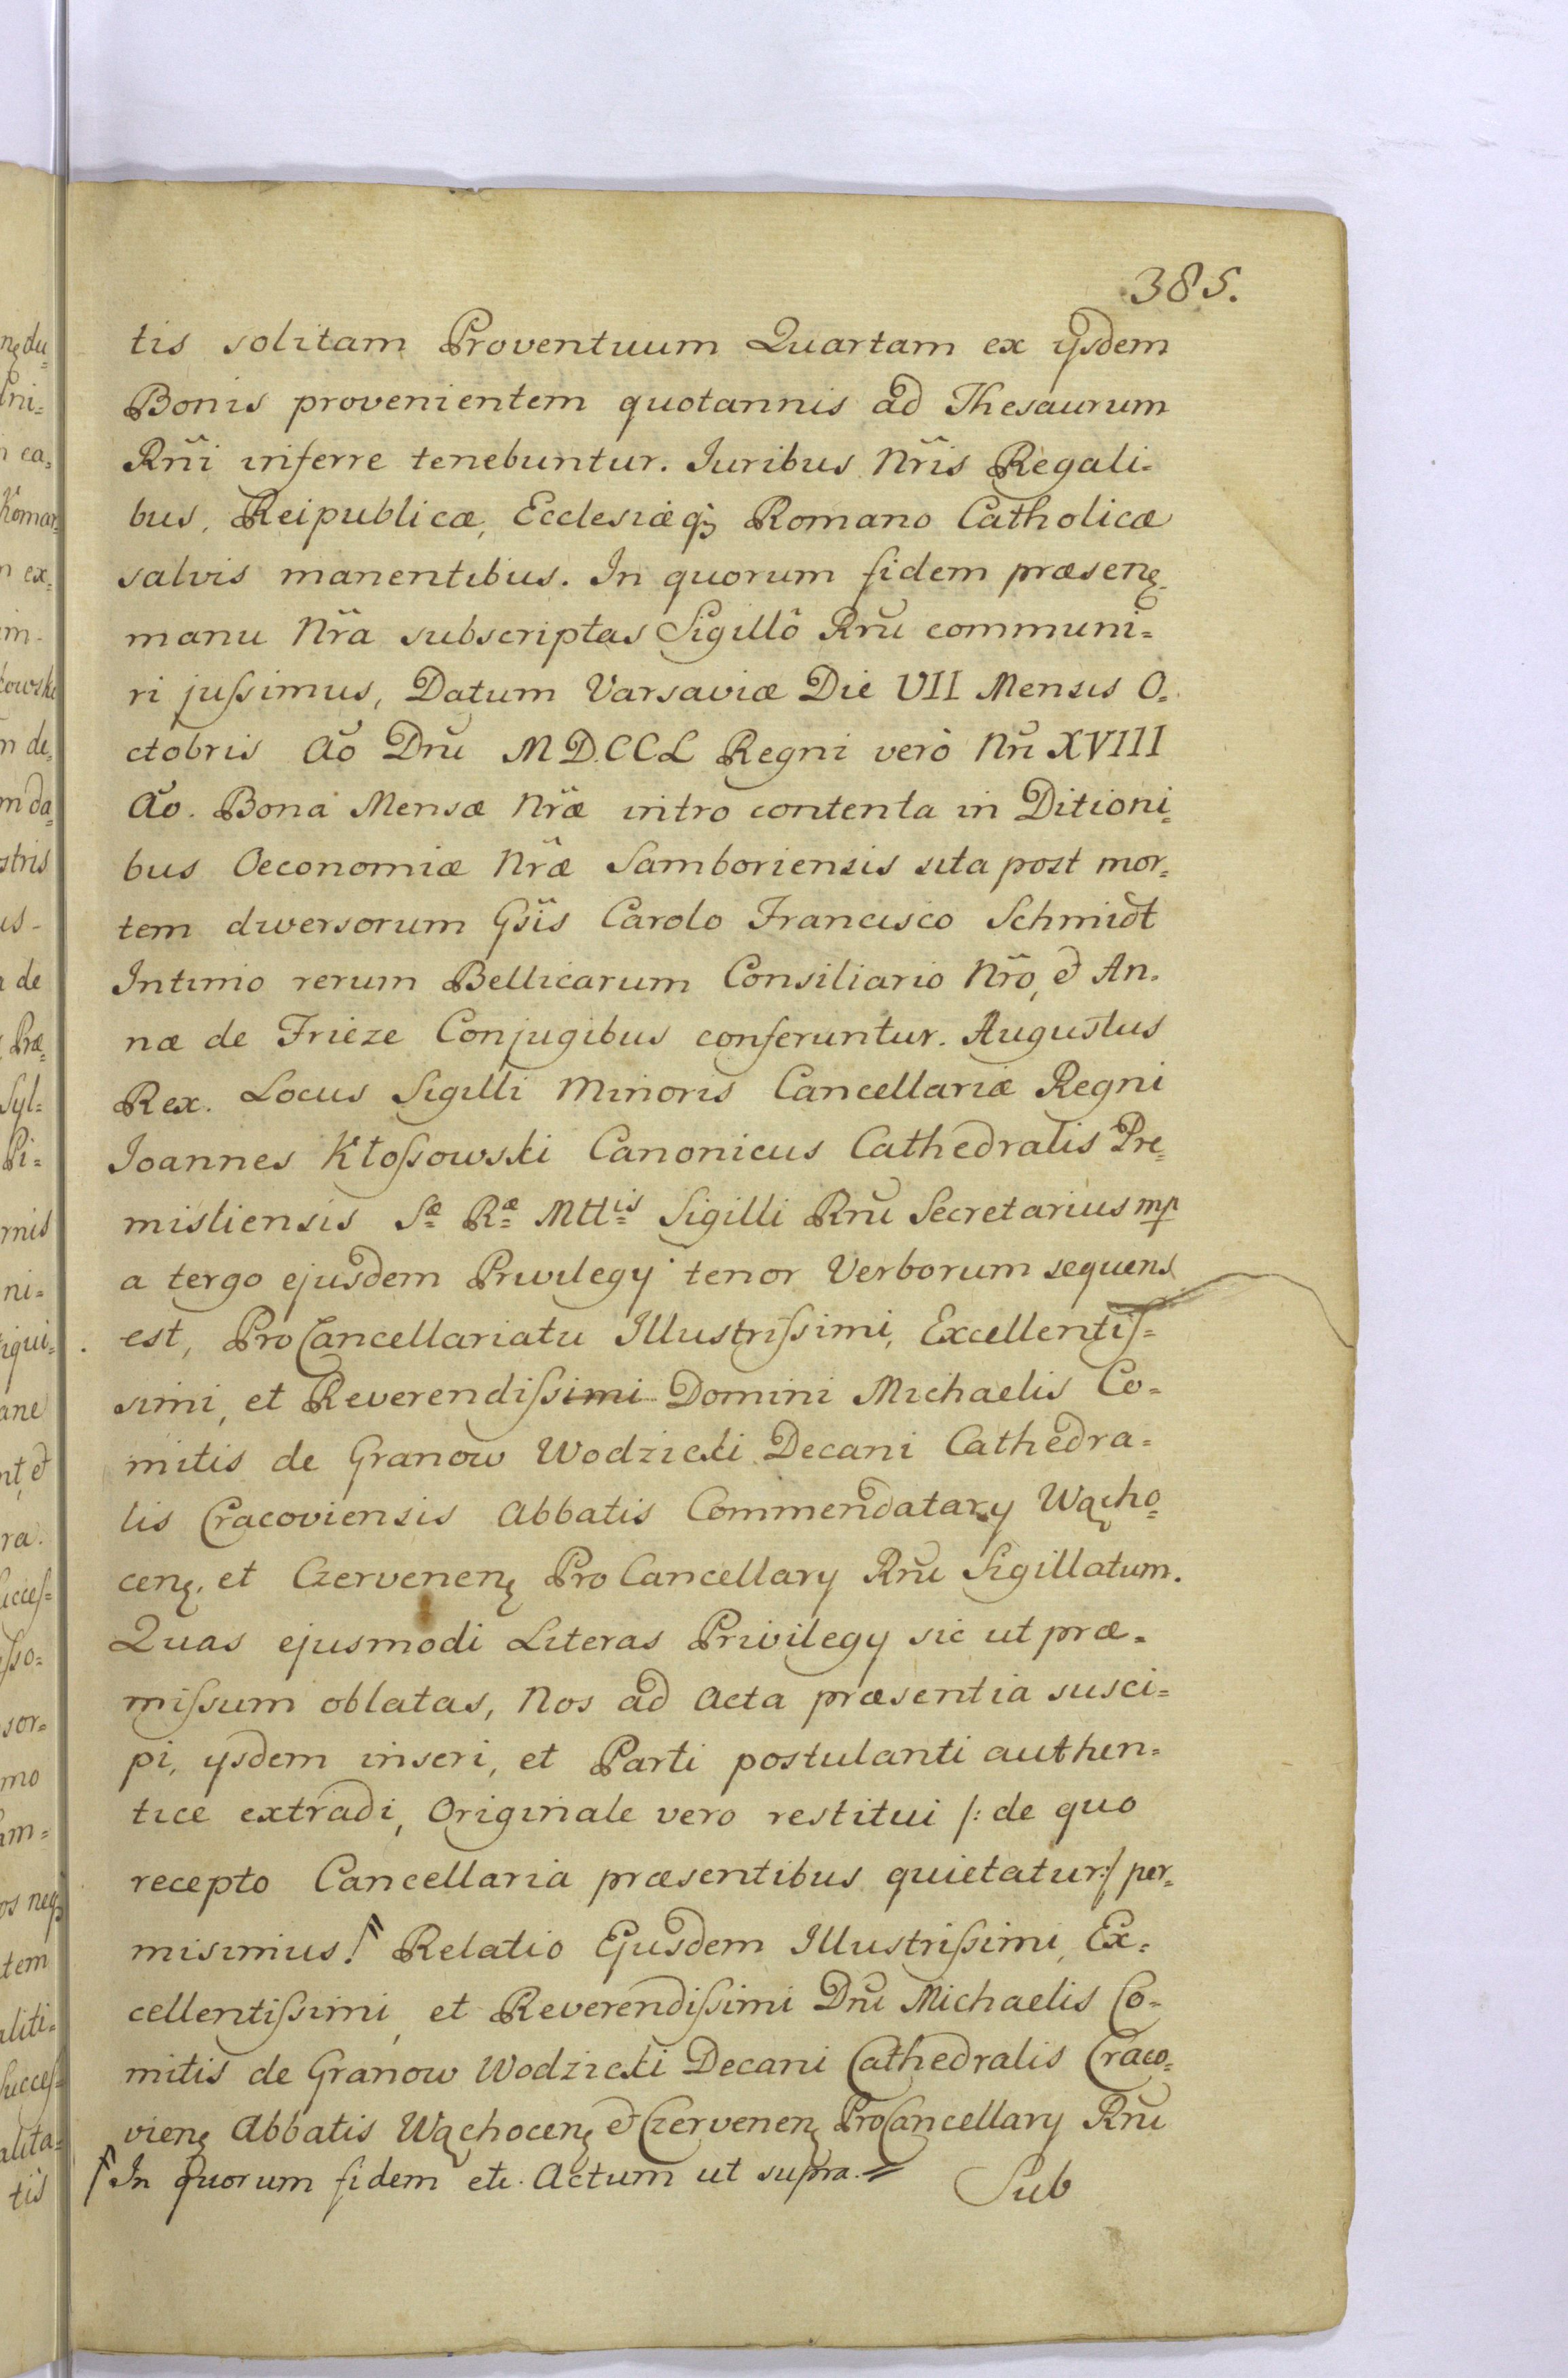 385.
tis solitam Proventuum Quartam ex ijsdem
Bonis provenientem quotannis ad Thesaurum
Rñi inferre tenebuntur. Juribus Nr̃is Regali=
bus, Reipublicæ, Ecclesiæq̃ Romano Catholicæ
salvis manentibus. In quorum fidem præsenę
manu Nr̃a subscriptas Sigillô Rñi communi=
ri jußimus, Datum Varsaviæ Die VII Mensis O=
ctobris Aõ Dñi MD.CCL Regni verò Nr̃i XVIII
Aõ. Bona Mensæ Nr̃æ intro contenta in Ditioni=
bus Oeconomiæ Nr̃æ Samboriensis sita post mor=
tem diversorum Gsĩs Carolo Francisco Schmidt
Intimo rerum Bellicarum Consiliario Nr̃o, et An=
næ de Frieze Conjugibus conferuntur. Augustus
Rex. Locus Sigilli Minoris Cancellariæ Regni
Joannes Kłoßowski Canonicus Cathedralis Pre=
misliensis Sæ Ræ Mttis Sigilli Rñi Secretarius mp
a tergo ejusdem Privilegÿ tenor Verborum sequens
est, ProCancellariatu Illustrißimi, Excellentiß=
simi, et Reverendißsimi Domini Michaelis Co=
mitis de Granow Wodzicki Decani Cathedra=
lis Cracoviensis Abbatis Commendatarÿ Wącho=
cenę, et Czervenenę ProCancellarÿ Rñi Sigillatum.
Quas ejusmodi Literas Privilegÿ sic ut præ=
mißum oblatas, Nos ad Acta præsentia susci=
pi, ijsdem inseri, et Parti postulanti authen=
tice extradi, Originale vero restitui /: de quo
recepto Cancellaria præsentibus quietatur :/ per=
misimus. Relatio Ejusdem Illustrißimi, Ex=
cellentißimi, et Reverendißimi Dñi Michaelis Co=
mitis de Granow Wodzicki Decani Cathedralis Craco=
vienę Abbatis Wąchocenę et Czervenenę ProCancellarÿ Rñi
In quorum fidem etc. Actum ut supra.
Sub